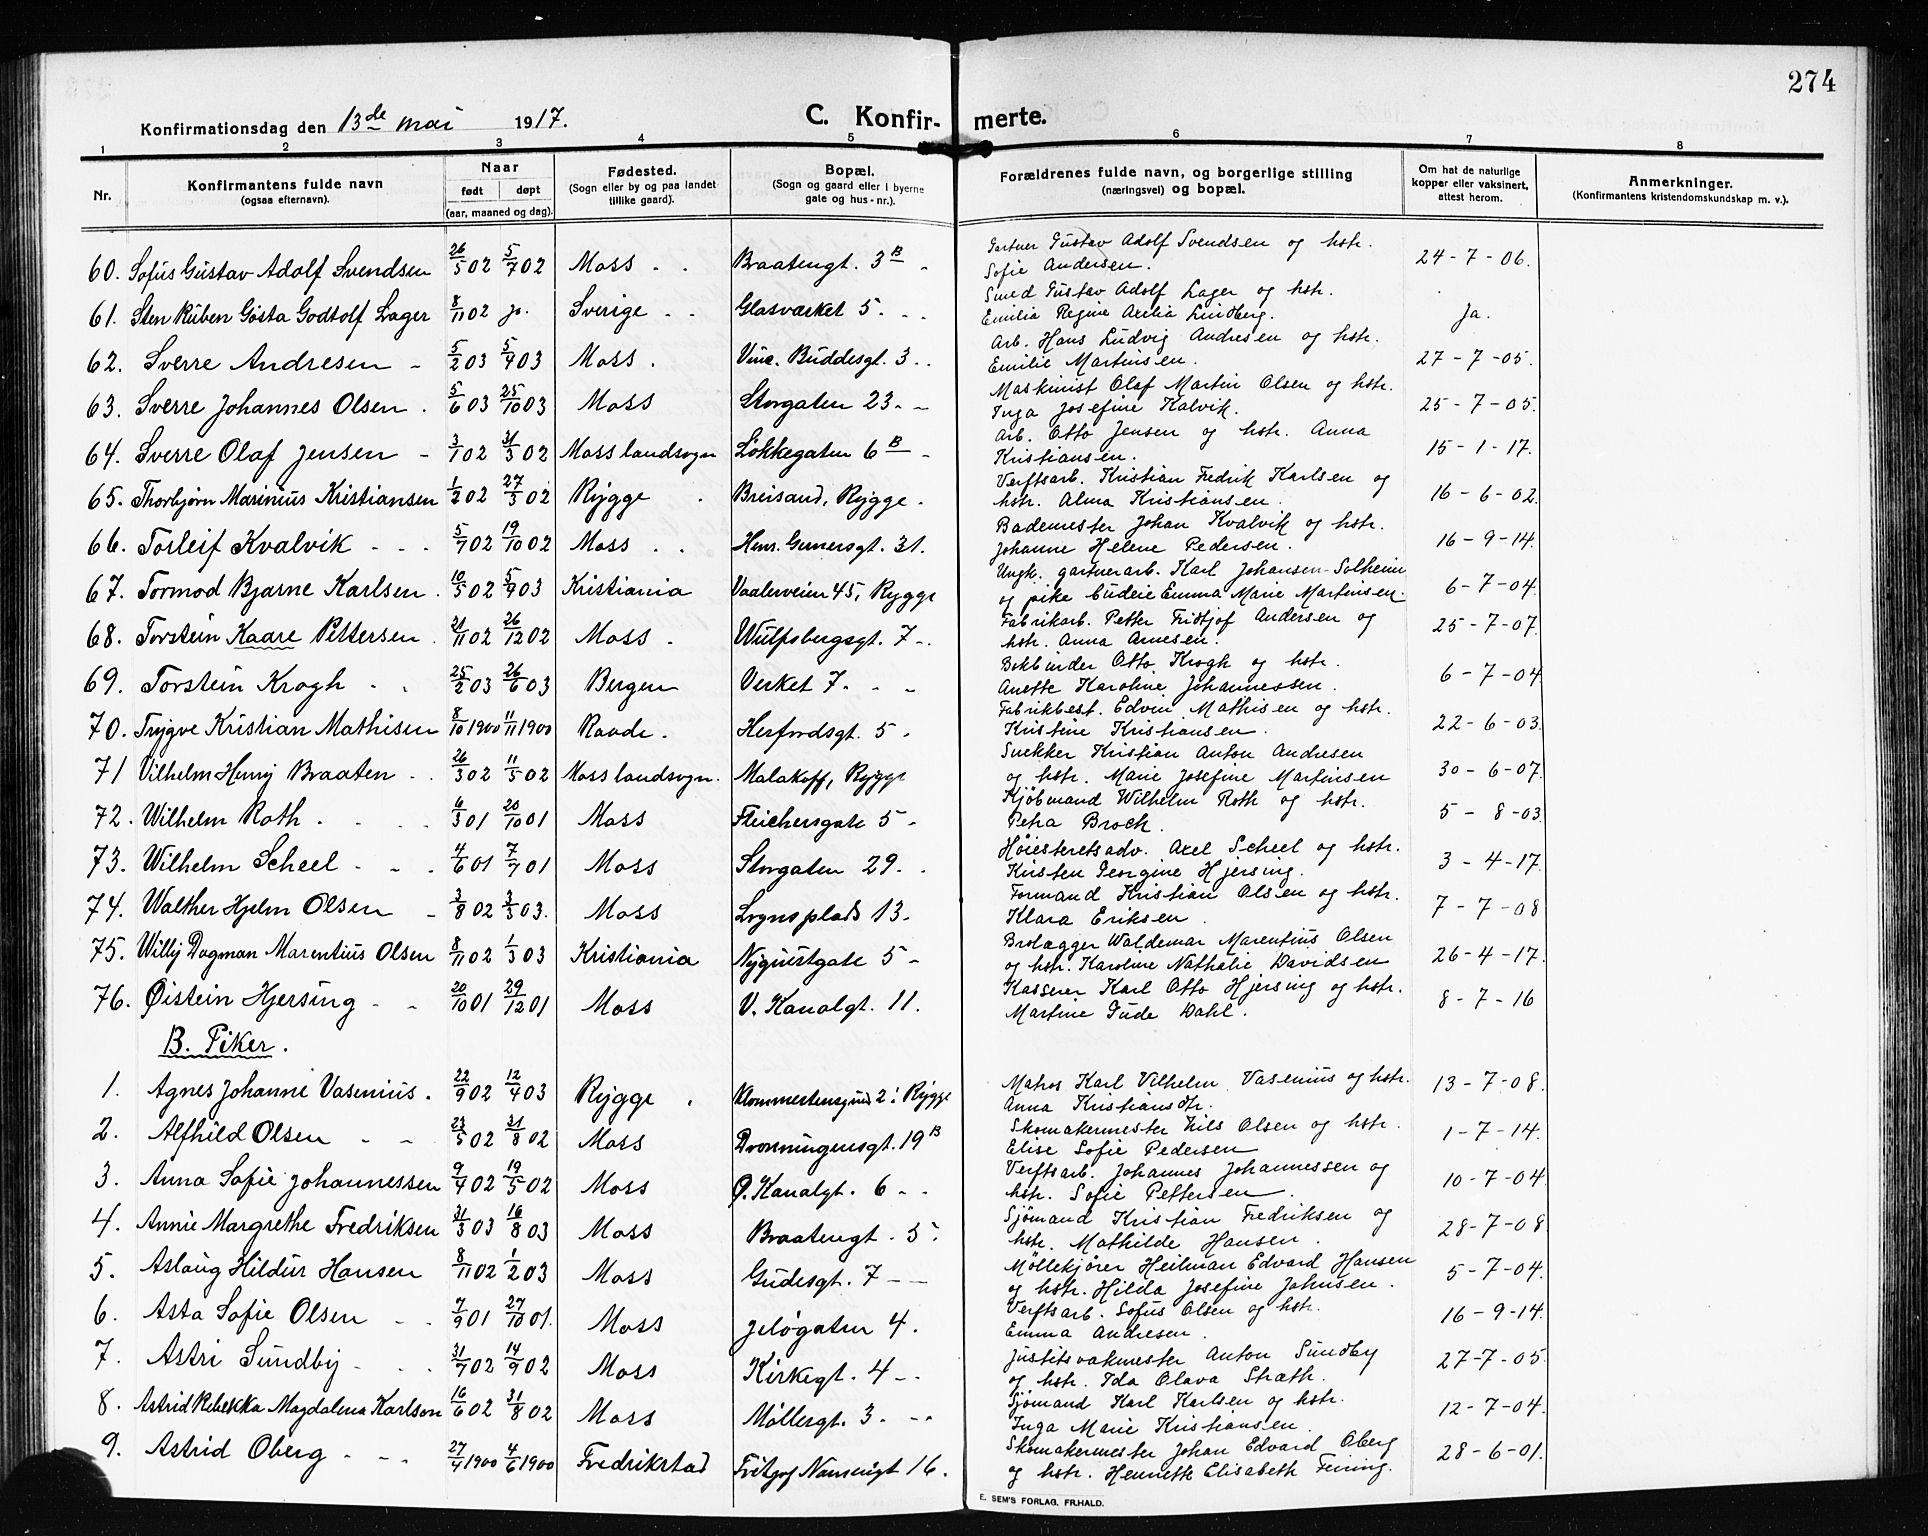 274
Konfirmationsdag den 13de mai 1917.
C. Konfir- merte.
1 2 3 4 5 6 7 8
Nr.
Konfirmantens fulde navn
(ogsaa efternavn).
Naar
født døpt
(aar, maaned og dag).
Fødested.
(Sogn eller by og paa landet
tillike gaard).
Bopæl.
(Sogn og gaard eller i byerne
gate og hus-nr.).
Forældrenes fulde navn, og borgerlige stilling
(næringsvei) og bopæl.
Om hat de naturlige
kopper eller vaksinert,
attest herom.
Anmerkninger.
(Konfirmantens kristendomskundskap m. v.).
60. Sofus Gustav Adolf Svendsen 26/5 02 5/7 02 Moss Braatengt. 3 B Gartner Gustav Adolf Svendsen og hstr. 24-7-06.
Sofie Andersen.
61. Sten Ruben Gösta Godtolf Lager 8/11 02 ja. Sverige Glasværket 5. Smed Gustav Adolf Lager og hstr. Ja.
Emilia Regine Axelia Lindberg.
62. Sverre Andresen 5/2 03 5/4 03 Moss. Vinc. Buddesgt. 3 Arb. Hans Ludvig Andresen og hstr. 27-7-05.
Emilie Martinsen.
63. Sverre Johannes Olsen 5/6 03 25/10 03 Moss Storgaten 23. Maskinist Olaf Martin Olsen og hstr. 25-7-05.
Inga Josefine Kalvik.
64. Sverre Olaf Jensen 3/1 02 31/3 02 Moss landsogn Løkkegaten 6 B Arb. Otto Jensen og hstr. Anna 15-1-17.
Kristiansen.
65. Thorbjørn Marinius Kristiansen 1/2 02 27/3 02 Rygge Breisand, Rygge. Verftsarb. Kristian Fredrik Karlsen og 16-6-02.
hstr. Alma Kristiansen.
66. Torleif Kvalvik 5/7 02 19/10 02 Moss Henr. Gernersgt. 31. Bademester Johan Kvalvik og hstr. 16-9-14.
Johanne Helene Pedersen.
67. Tormod Bjarne Karlsen 10/5 02 5/9 03 Kristiania Vaalerveien 45, Rygge Ungk. gartnerarb. Karl Johansen-Solheim 6-7-04.
og pike budeie Emma Marie Martinsen.
68. Torstein Kaare Pettersen 21/11 02 26/12 02 Moss Wulfsbergsgt. 7 Fabrikarb. Petter Fridtjof Andersen og 25-7-07.
hstr. Anna Arnesen.
69. Torstein Krogh 25/2 03 26/6 03 Bergen Verket 7. Bokbinder Otto Krogh og hstr. 6-7-04
Anette Karoline Johannessen.
70. Trygve Kristian Mathisen 8/10 1900 11/11 1900 Raade. Herfordsgt. 5 Fabrikbest. Edvin Mathisen og hstr. 22-6-03.
Kristine Kristiansen.
71 Vilhelm Henry Braaten 26/3 02 11/5 02 Moss landsogn. Malakoff, Rygge Snekker Kristian Anton Andresen 30-6-07.
og hstr. Marie Josefine Martinsen
72. Wilhelm Roth 6/3 01 20/10 01 Moss Fleichersgate 5 Kjøbmand Wilhelm Roth og hstr. 5-8-03.
Petra Brock.
73. Wilhelm Scheel 4/6 01 7/7 01 Moss Storgaten 29. Høiesteretsadv. Axel Scheel og hstr. 3-4-17.
Kirsten Georgine Hjersing.
74. Walther Hjelm Olsen 3/8 02 3/3 03. Moss Logns plads 13. Formand Kristian Olsen og hstr. 7-7-08
Klara Eriksen.
75. Willy Dagman Marentius Olsen 8/11 02 1/3 03 Kristiania Nyquistgate 5 Brolægger Waldemar Marentius Olsen 26-4-17.
og hstr. Karoline Nathalie Davidsen
76. Øistein Hjersing 20/10 01 29/12 01 Moss V. Kanalgt. 11. Kasserer Karl Otto Hjersing og hstr. 8-7-16
Martine Gude Dahl.
B. Piker.
1. Agnes Johanne Vasenius. 22/9 02 12/4 03 Rygge Klommestensgrund 2: Rygge Matros Karl Vilhelm Vasenius og hstr. 13-7-08.
Anna Kristiansdtr.
2. Alfhild Olsen 23/5 02 31/8 02 Moss Dronningensgt. 19 B Skomakermester Nils Olsen og hstr. 1-7-14.
Elise Sofie Pedersen
3. Anna Sofie Johannessen 9/4 02 19/5 02 Moss Ø. Kanalgt. 6 Verftsarb. Johannes Johannessen og 10-7-04
hstr. Sofie Pettersen.
4. Annie Margrethe Fredriksen 31/3 03 16/8 03 Moss Braatengt. 5. Sjømand Kristian Fredriksen og 28-7-08
hstr. Mathilde Hansen.
5. Aslaug Hildur Hansen 8/11 02 1/2 03 Moss Gudesgt. 7 Møllekjører Heilman Edvard Hansen 5-7-04.
og hstr. Hilda Josefine Johnsen.
6. Asta Sofie Olsen 7/9 01 27/10 01. Moss Jeløgaten 4. Verftsarb. Sofus Olsen og hstr. 16-9-14.
Emma Andresen.
7. Astri Sundby 31/7 02 14/9 02 Moss Kirkegt. 4 Justitsvaktmester Anton Sundby 27-7-05
og hstr. Ida Olava Strøth.
8. Astrid Rebekka Magdalena Karlson 16/6 02 31/8 02 Moss Møllergt. 3. Sjømand Karl Karlsen og hstr. 12-7-04.
Inga Marie Kristiansen.
9. Astrid Oberg 27/4 1900 4/6 1900 Fredrikstad Fritjof Nansensgt 16. Skomakermester Johan Edvard Oberg 28-6-01.
og hstr. Henriette Elisabeth Feiring.
E. SEM'S FORLAG, FR.HALD.